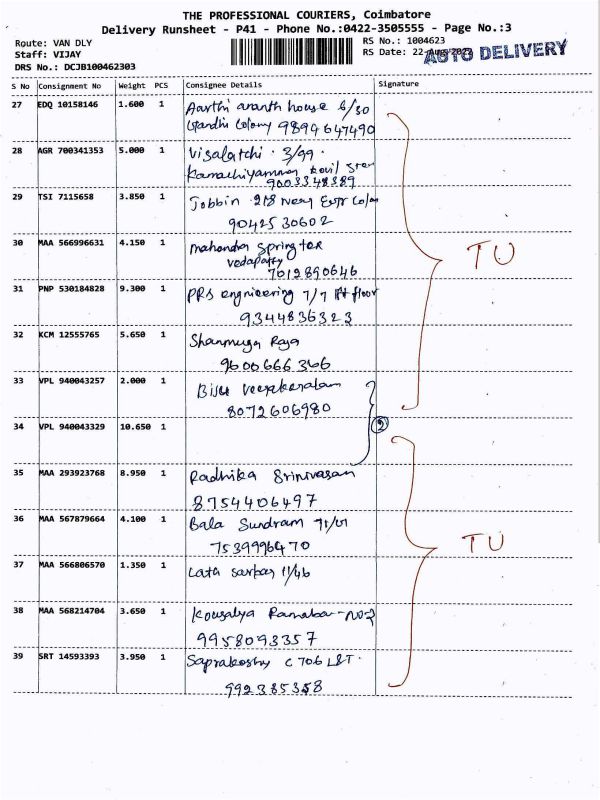 THE PROFESSIONAL COURIERS, Coimbatore
Delivery Runsheet - P41 - Phone No.:0422-3505555 - Page No.:3
Route: VAN DLY
Staff: VIJAY
DRS No.: DCJB100462303
RS No.: 1004623
RS Date: 22-Aug-2023
AUTO DELIVERY
S No Consignment No Weight PCS Consignee Details Signature
27 EDQ 10158146 1.600 1 Aarthi ananth house 6/30
Gandhi Colony 9894647490
28 AGR 700341353 5.000 1 Visalatchi . 3/99 .
Kamachiyamman kovil Stre
9003348389
29 TSI 7115658 3.850 1 Jobbin 218 Near Colon
9042530602
30 MAA 566996631 4.150 1 mahendra spring tex
vedapatty
7012890646
TU
31 PNP 530184828 9.300 1 PRS engnieering 7/7 floor
9344836323
32 KCM 12555765 5.650 1 Shanmuga Raja
9600666366
33 VPL 940043257 2.000 1 Biju
8072606980
34 VPL 940043329 10.650 1
2
35 MAA 293923768 8.950 1 Radhika Srinivasan
8754406497
36 MAA 567879664 4.100 1 Bala Sundram
7539996470
TU
37 MAA 566806570 1.350 1 Lata sarkar 11/46
38 MAA 568214704 3.650 1 Kousalya
9958093357
39 SRT 14593393 3.950 1 C 706 L&T.
992385358